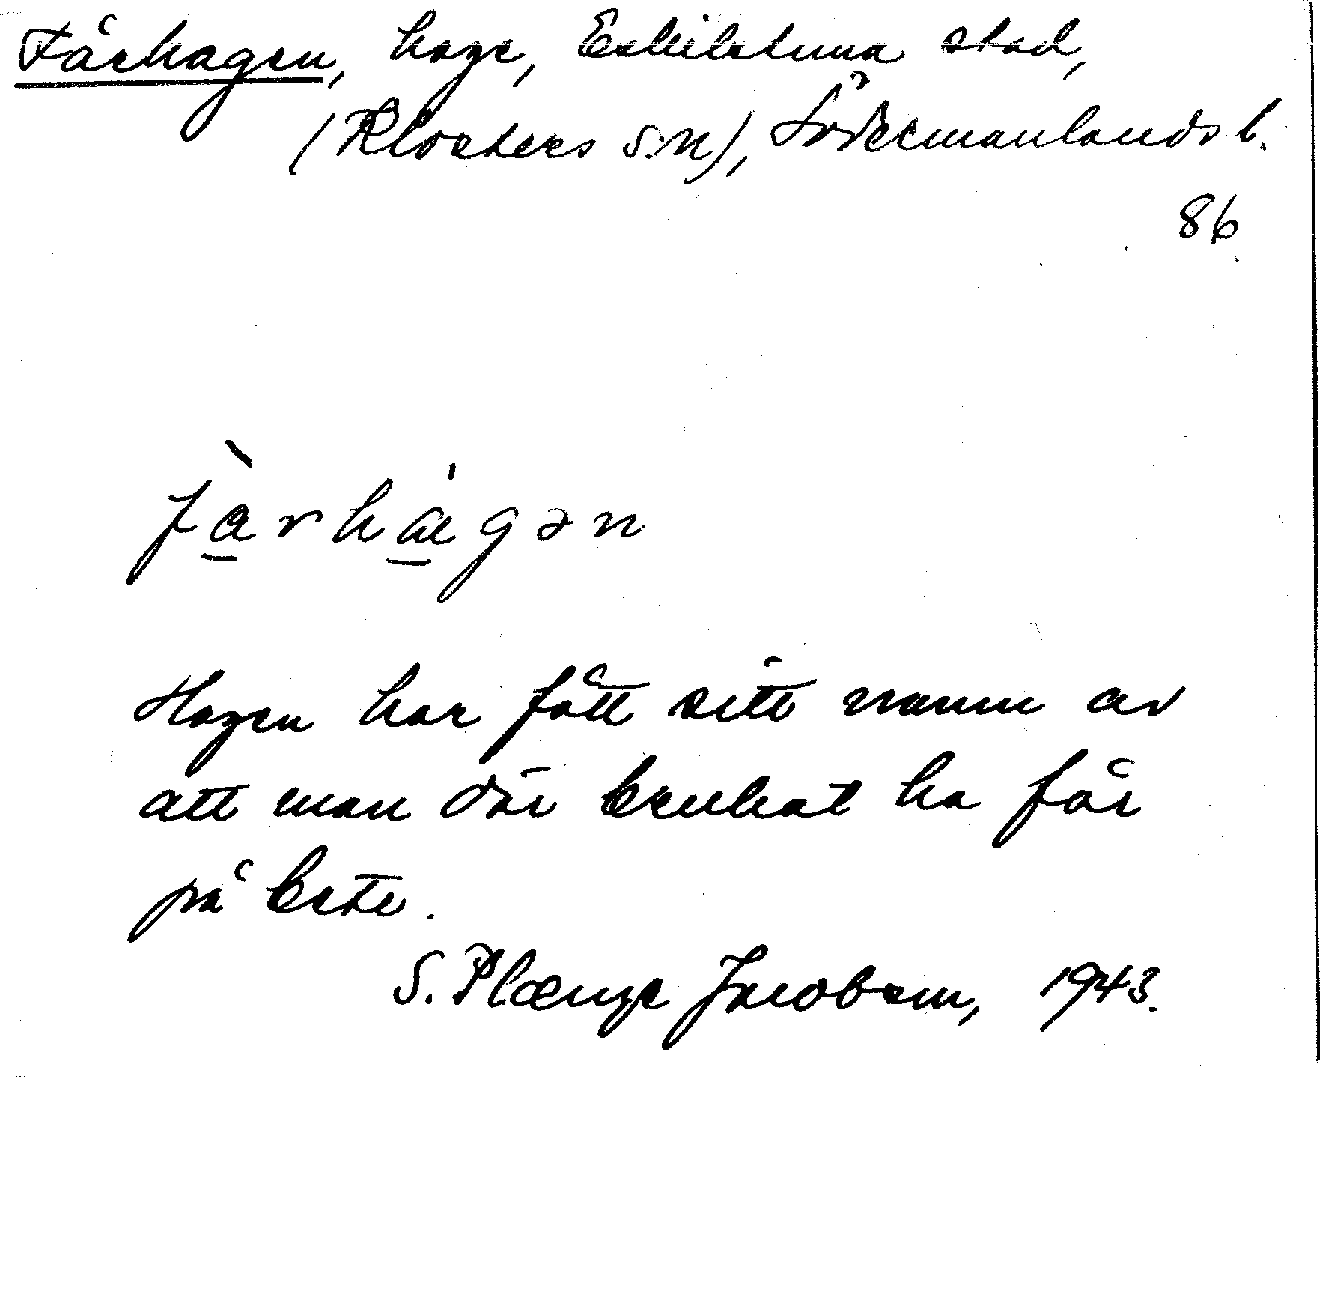 Fårhagen, hage, Eskilstuna stad,
(Klosters sn), Södermanlands l.
86
Hagen har fått sitt namn av
att man där brukat ha får
på bete.
S. Plænge Jacobsen, 1943.